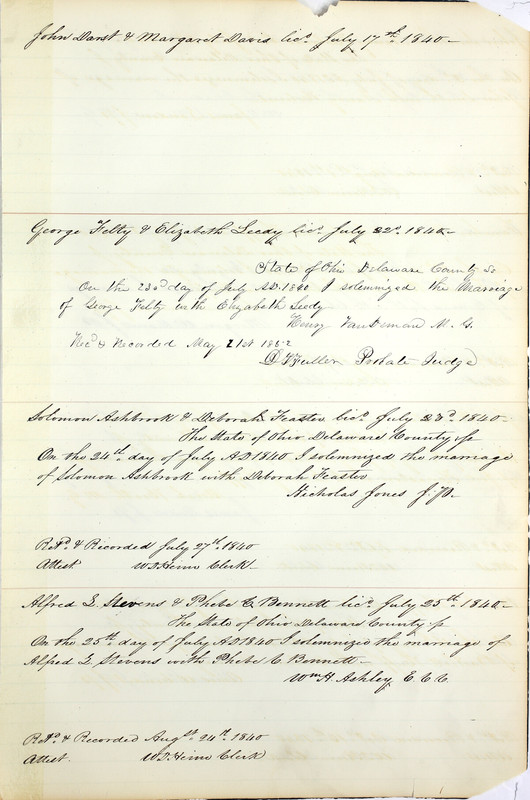 John Darst & Margaret Davis lics. July 17th. 1840-
George Felty & Elizabeth Leedy lics. July 22d. 1840-
State of Ohio Delaware County Ss
On the 23d day of July A.D. 1840 I solemnized the Marriage
of George Felty with Elizabeth Leedy
Henry VanDeman M. G.
Rec'd & Recorded May 21st 1862
Fuller Probate Judge
Solomon Ashbrook & Deborah Feaster lics. July 23d. 1840-
The State of Ohio Delaware County ss
On the 24th. day of July AD 1840 I solemnized the marriage
of Solomon Ashbrook with Deborah Feaster
Nicholas Jones J.P.
Retd. & Recorded July 27th. 1840
Attest W.D. Heim Clerk-
Alfred L. Stevens & Phebe C. Bennett lics. July 25th. 1840-
The State of Ohio Delaware County ss
On the 25th. day of July AD 1840 I solemnized the marriage of
Alfred L. Stevens with Phebe C. Bennett-
Wm H. Ashley E. C. C.
Retd. & Recorded Augst. 24th. 1840
Attest. W.D. Heim Clerk